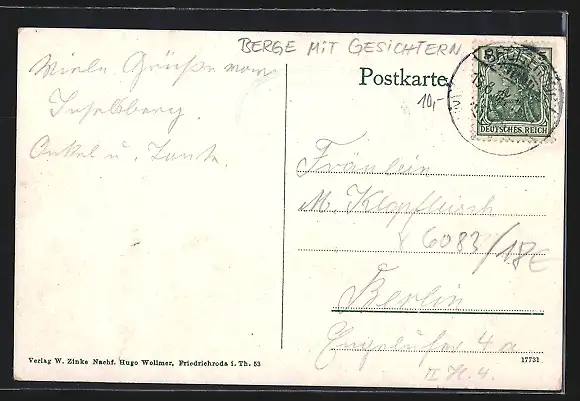 BERGE MIT GESICHTERN
Viele Grüße vom
Inselsberg.
Onkel u. Tante.
Postkarte
10,-
DEUTSCHES REICH
Fräulein
M. Klapfleisch
6083/18E
Berlin
4a
II H. 4.
Verlag W. Zinke Nachf. Hugo Wollmer, Friedrichroda i. Th. 53
17731